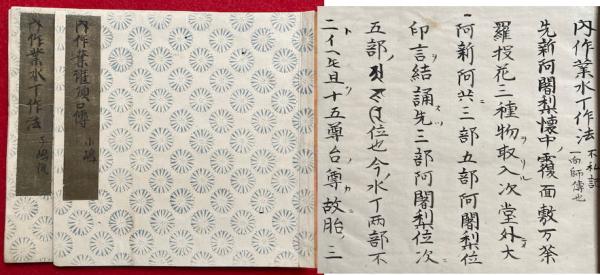 内作業水丁作法 不私記
向師傳也
先新阿闍梨懐中覆面敷万荼
羅投花三種物取入次堂外大
阿新阿共三部五部阿闍梨位
印言結誦先三部阿闍梨位次
五部 位也今水丁両部不
二 十五尊台尊故胎三
内作業灌頂口傳
内作業水丁作法